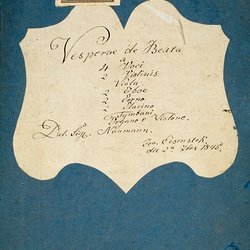 Vesperae de Beata
a
4 Voci
2 Violinis
Viola
2 Oboe
2 Corno
2 Clarino
Tympani
Organo e Violone.
Del Sig. Naumann.